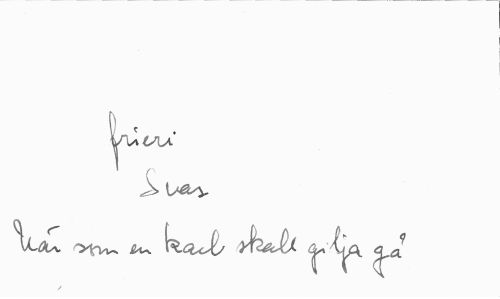 frieri
Svar
När som en karl skall gilja gå